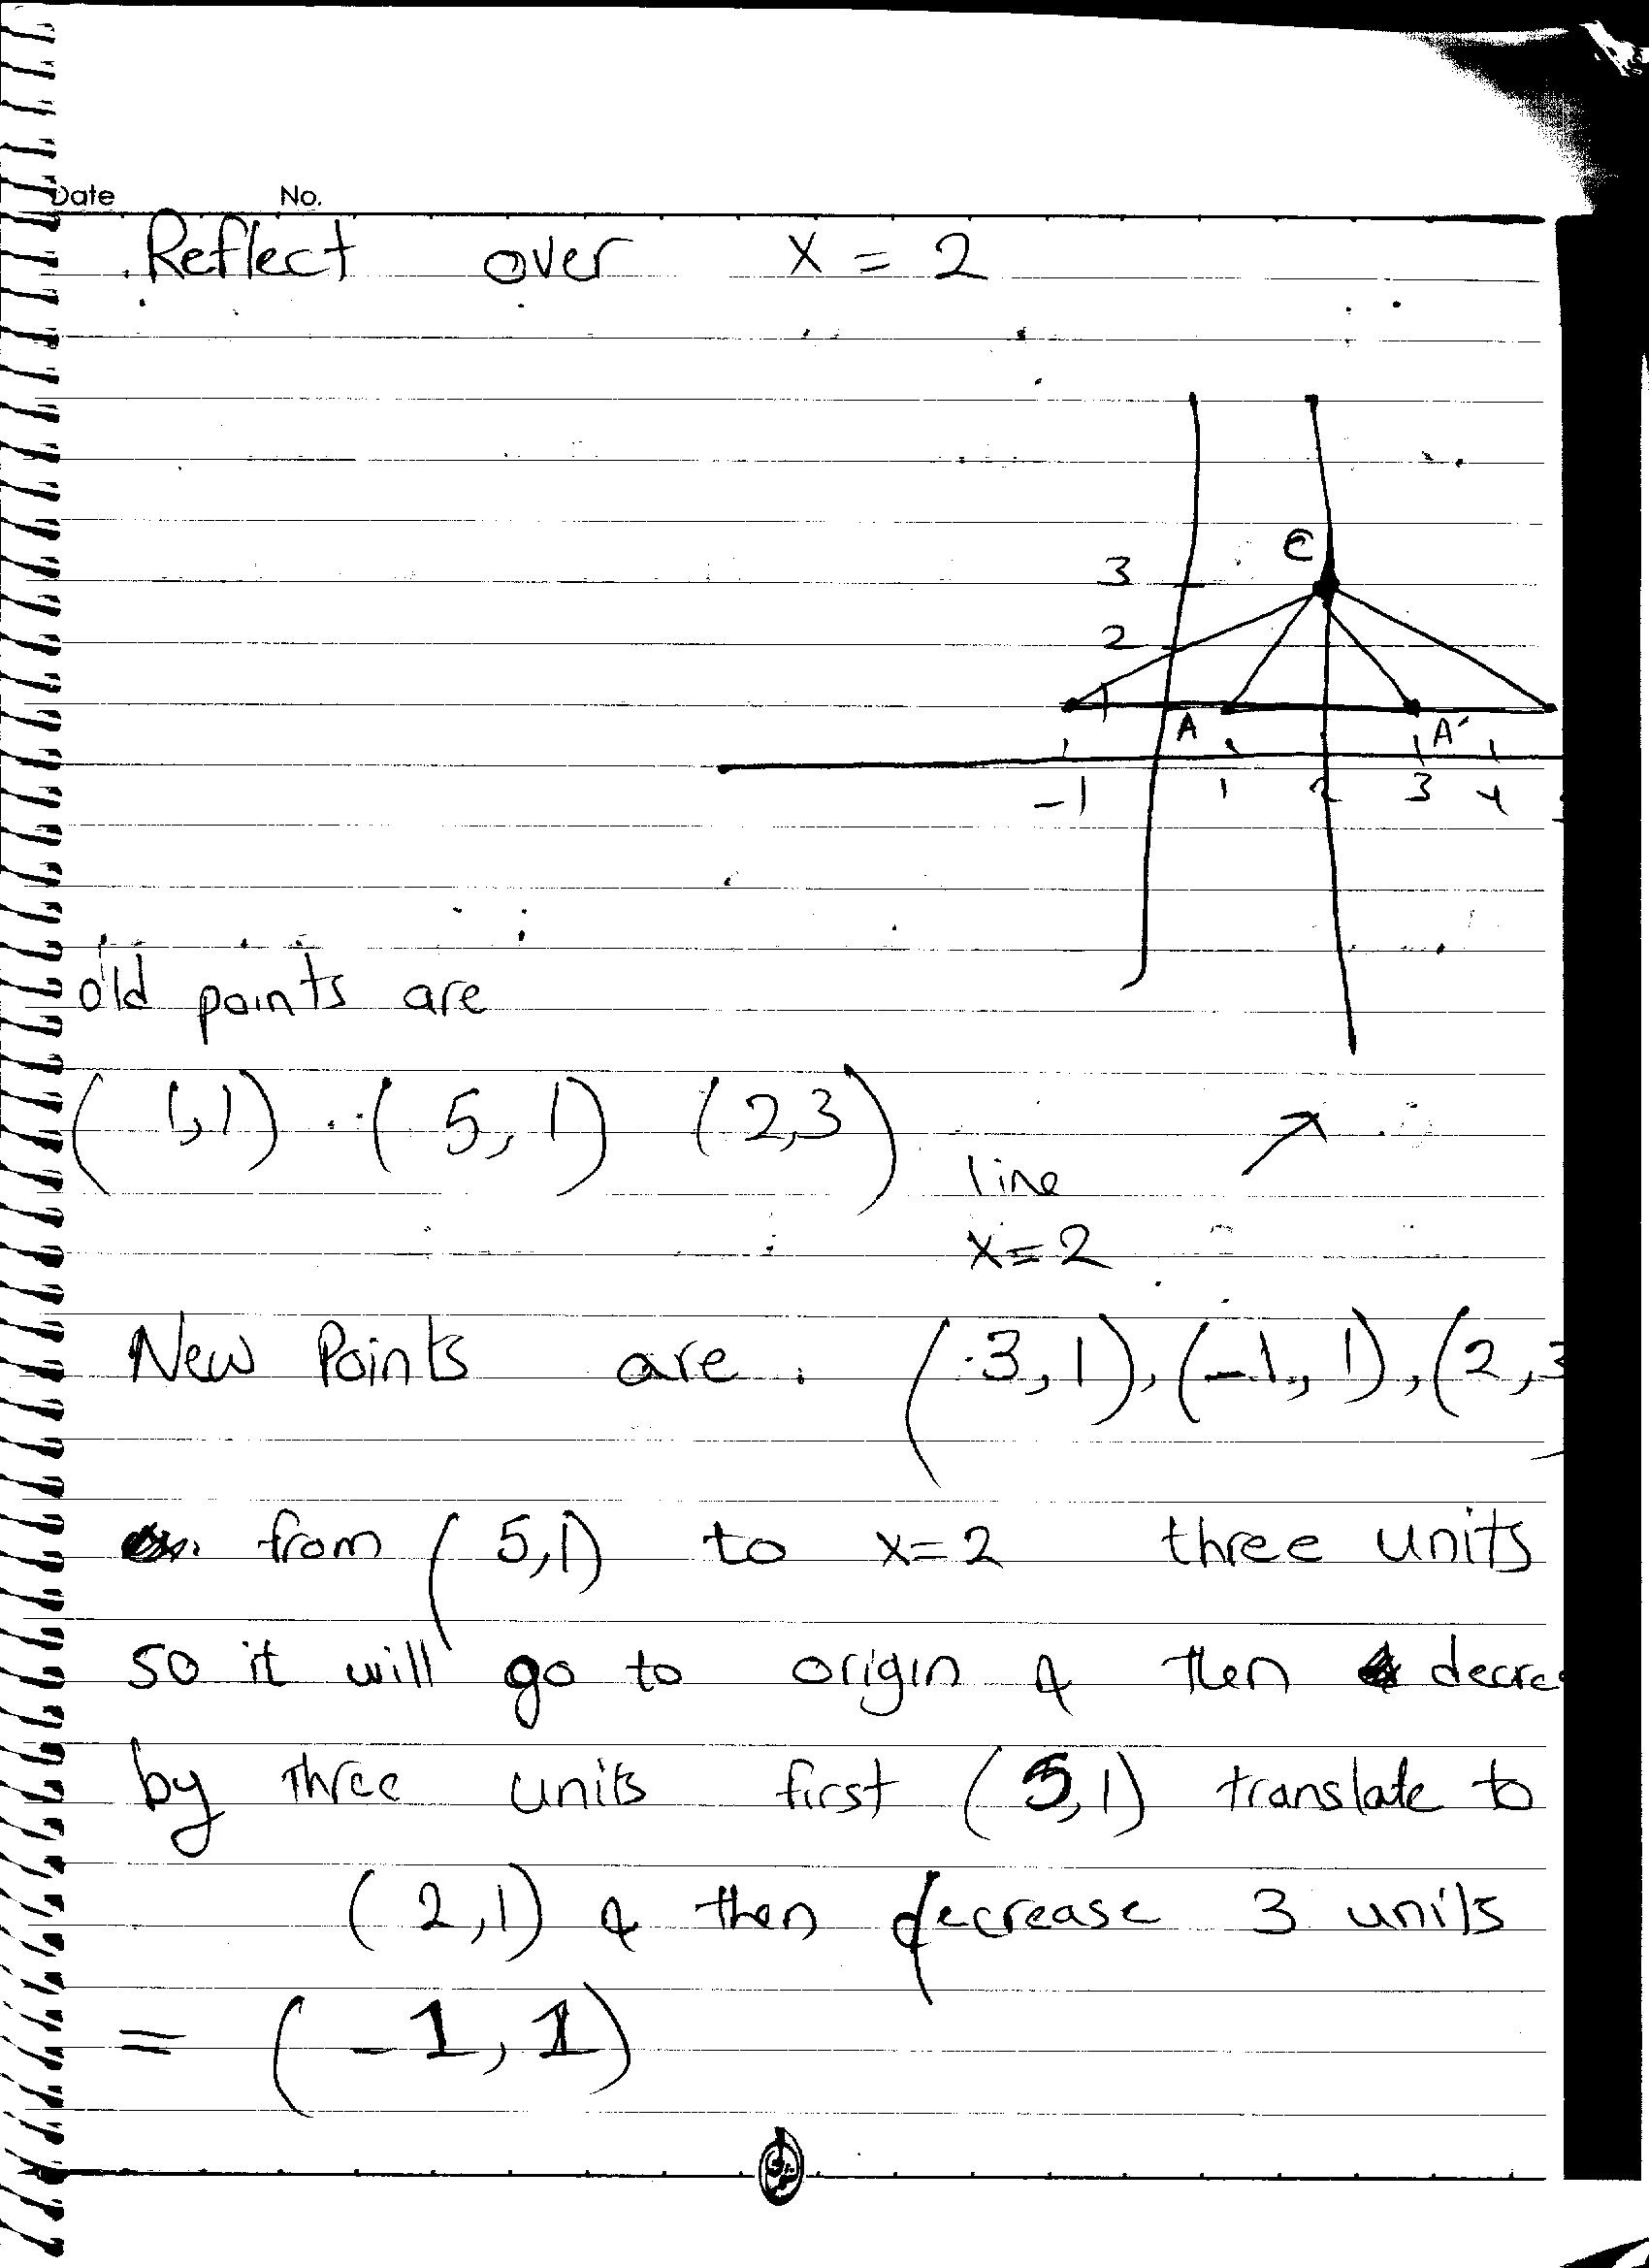 Date No.
Reflect over x = 2
C
3
2
1
A A'
-1 1 2 3 4
old points are
(1,1) (5,1) (2,3)
line
x=2
New Points are (3,1), (-1,1), (2,3
from (5,1) to x=2 three units
so it will go to origin & then decre
by three units first (5,1) translate to
(2,1) & then decrease 3 units
= (-1,1)